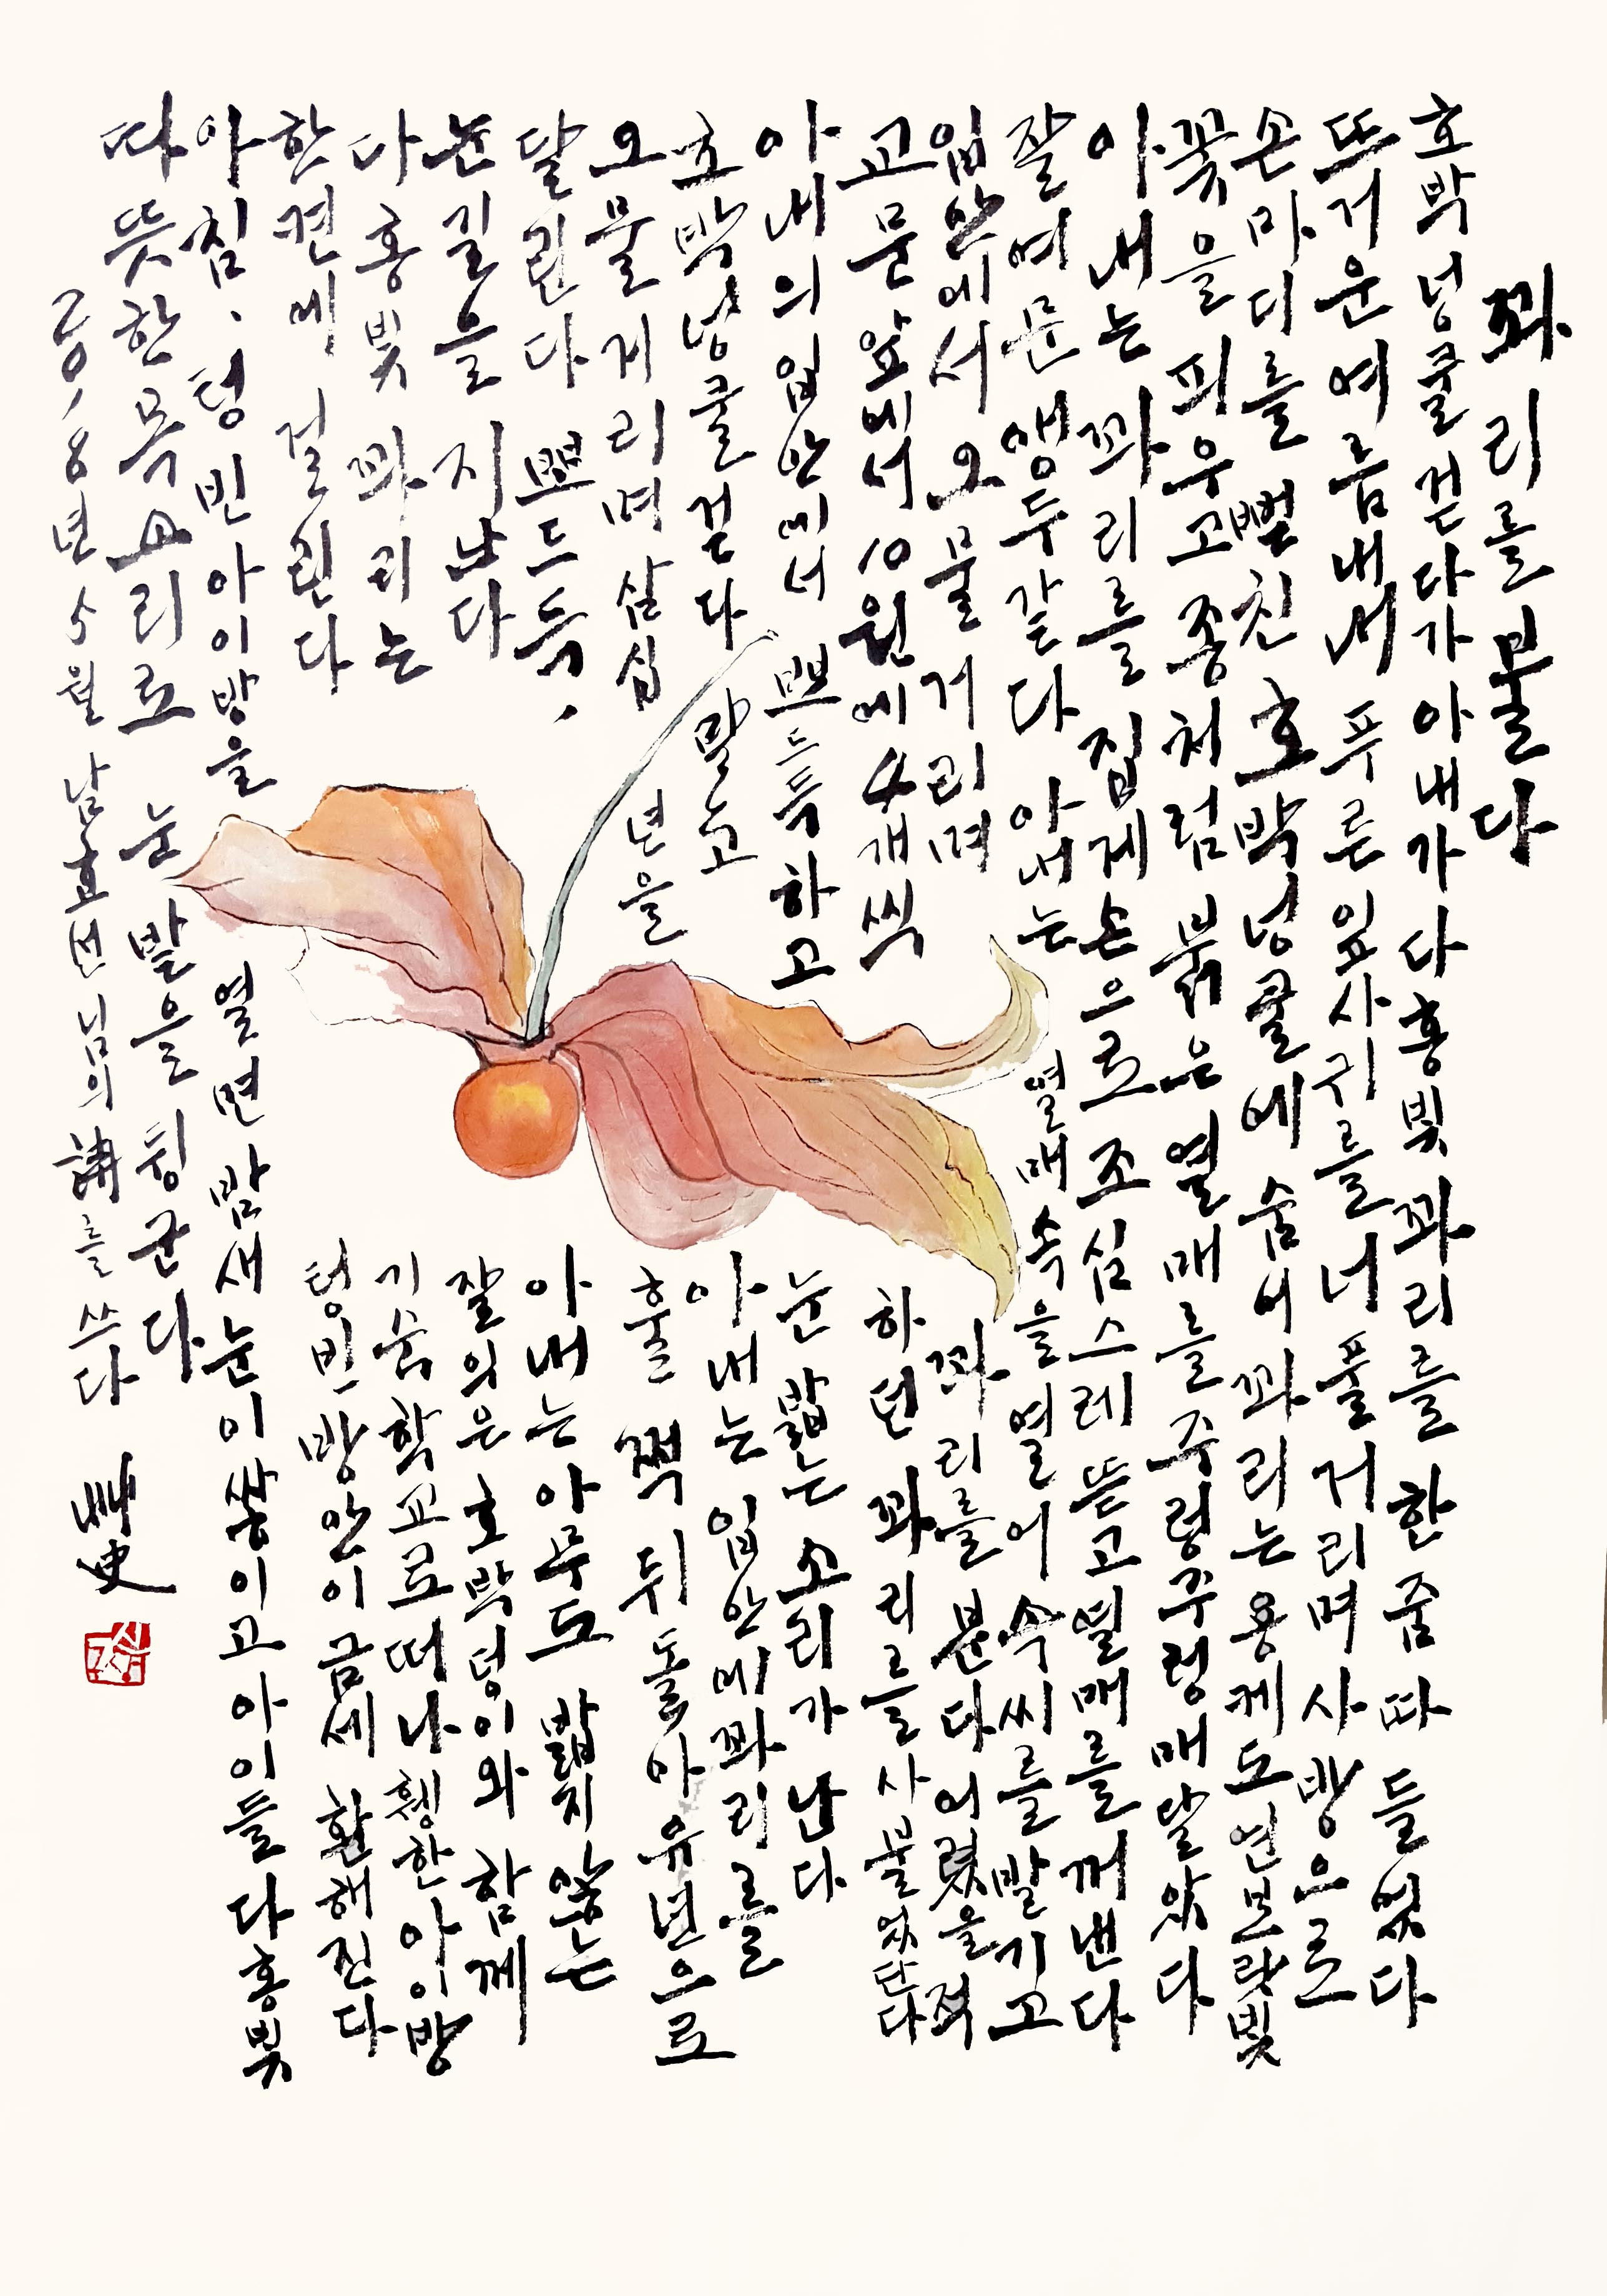 꽈리를 불다
호박넝쿨 걷다가 아내가 다홍빛 꽈리를 한 줌 따 들었다
뜨거운 여름내내 푸른 잎사귀를 너풀거리며 사방으로
손마디를 뻗친 호박넝쿨에 숨어 꽈리는 용케도 연보랏빛
꽃을 피우고 종처럼 붉은 열매를 주렁주렁 매달았다
아내는 꽈리를 집게손으로 조심스레 뜯고 열매를 꺼낸다
잘 여문 앵두 같다 아내는 열매 속을 열어 속씨를 발기고
입안에서 오물거리며 꽈리를 분다 어렸을 적
교문 앞에서 10원에 4개씩 하던 꽈리를 사 불었단다
아내의 입안에서 뽀드득하고 눈 밟는 소리가 난다
호박넝쿨 걷다 말고 아내는 입안에 꽈리를
오물게리며 삼십 년을 훌쩍 뒤돌아 유년으로
달린다 뽀드득, 아내는 아무도 밟지 않는
눈길을 지난다 잘 익은 호박덩이와 함께
다홍빛 꽈리는 기숙학교로 떠나 휑한 아이 방
한켠에 걸린다 텅빈 방안이 금세 환해진다
아침, 텅 빈 아이 방을 열면 밤새 눈이 쌓이고 아이들 다홍빛
따뜻한 목소리로 눈발을 튕군다
2018년 5월 남효선님의 詩를 쓰다 艸史